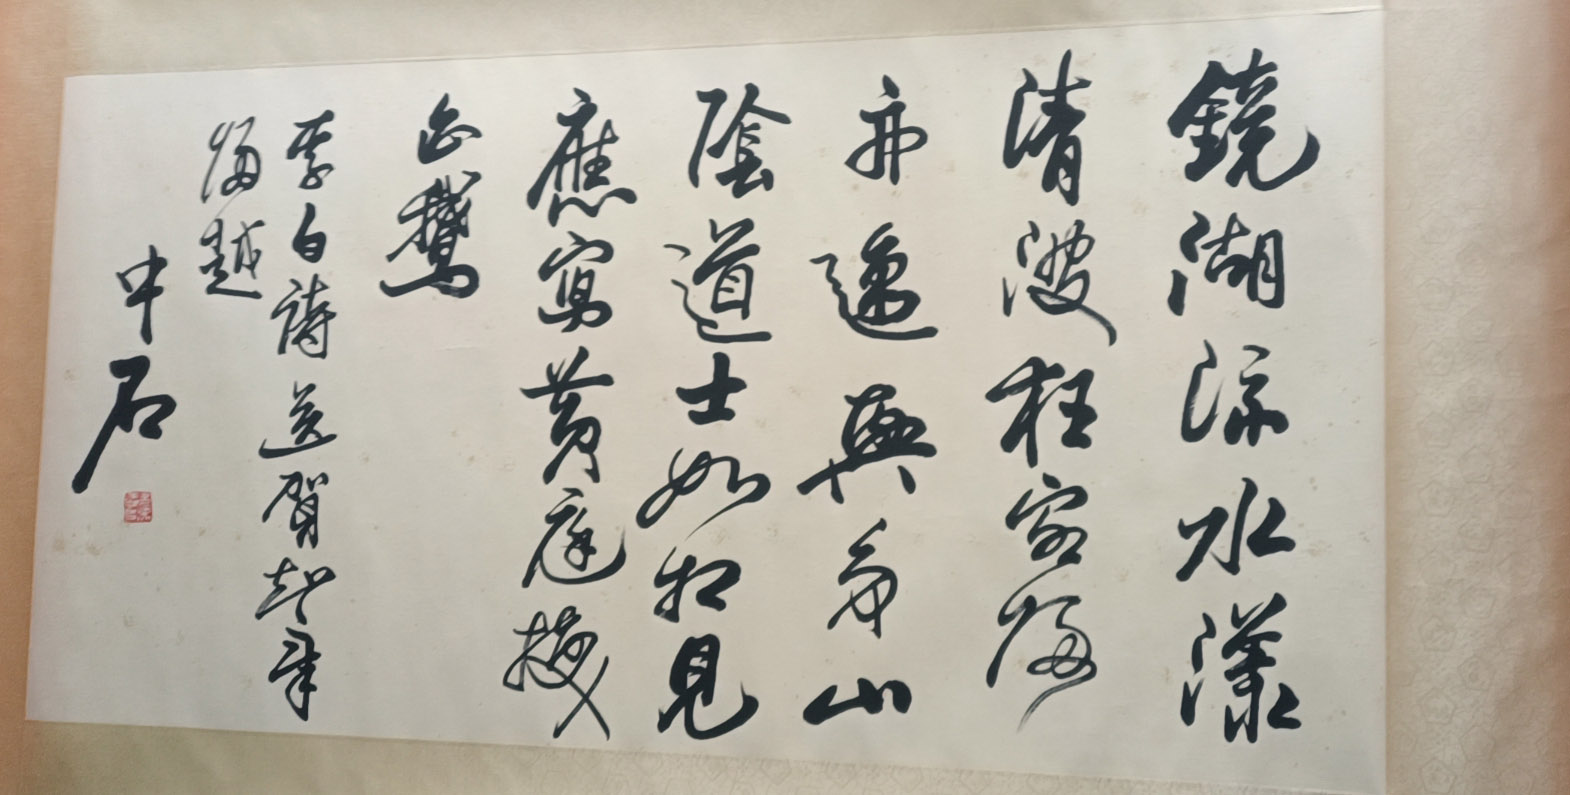 鏡湖流水漾
清波狂客歸
舟逸興多山
陰道士如相見
應寫黃庭換
白鵝
李白詩送賀知章
歸越
中石